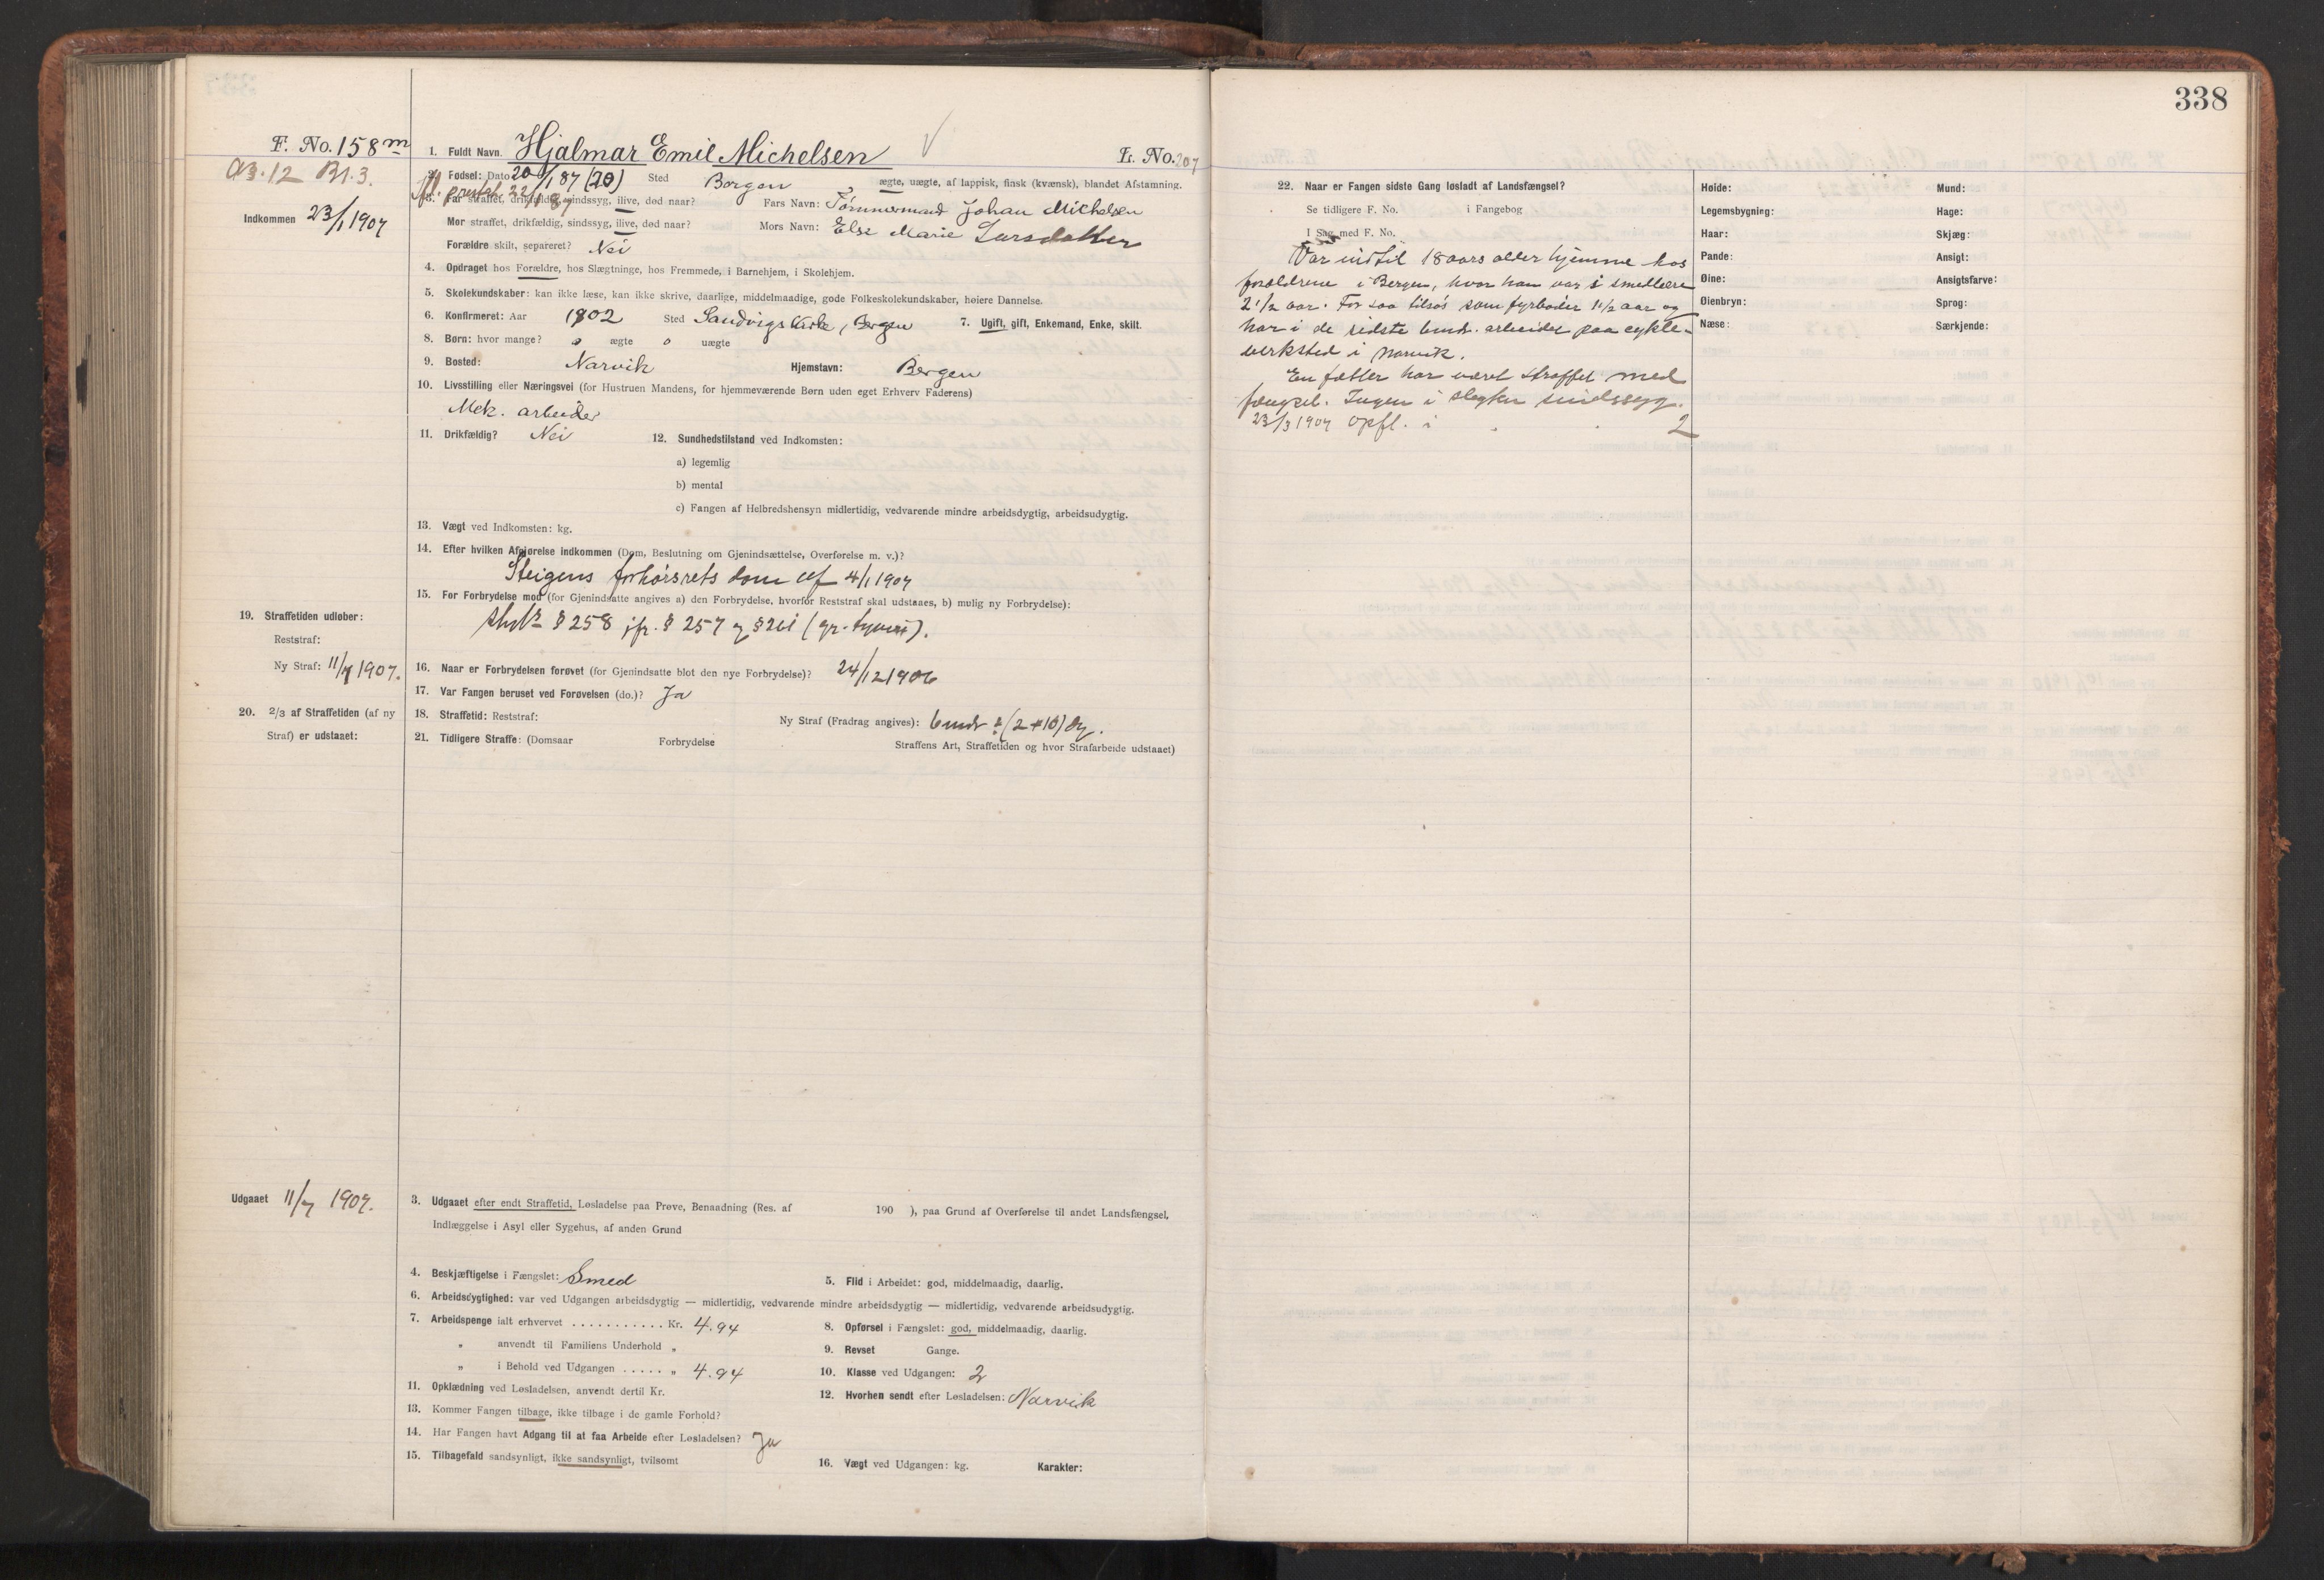 338
F. No. 158 m
A3.12 B1.3.
Indkommen 23/1 1907
1. Fuldt Navn. Hjalmar Emil Michelsen
L. No. 207
2. Fødsel: Dato 20/1 87 (20) Sted Bergen ægte, uægte, af lappisk, finsk (kvænsk), blandet Afstamning.
ifl. prestat. 22/1 87
3. Far straffet, drikfældig, sindssyg, ilive, død naar? Fars Navn: Tømmermand Johan Michelsen
Mor straffet, drikfældig, sindssyg, ilive, død naar? Mors Navn: Else Marie Larsdatter
Forældre skilt, separeret? Nei
4. Opdraget hos Forældre, hos Slægtninge, hos Fremmede, i Barnehjem, i Skolehjem.
5. Skolekundskaber: kan ikke læse, kan ikke skrive, daarlige, middelmaadige, gode Folkeskolekundskaber, høiere Dannelse.
6. Konfirmeret: Aar 1902 Sted Sandvigs Kirke, Bergen 7. Ugift, gift, Enkemand, Enke, skilt.
8. Børn: hvor mange? 0 ægte 0 uægte
9. Bosted: Narvik Hjemstavn: Bergen
10. Livsstilling eller Næringsvei (for Hustruen Mandens, for hjemmeværende Børn uden eget Erhverv Faderens)
Mek. arbeider
11. Drikfældig? Nei 12. Sundhedstilstand ved Indkomsten:
a) legemlig
b) mental
c) Fangen af Helbredshensyn midlertidig, vedvarende mindre arbeidsdygtig, arbeidsudygtig.
13. Vægt ved Indkomsten: kg.
14. Efter hvilken Afgjørelse indkommen (Dom, Beslutning om Gjenindsættelse, Overførelse m. v.)?
Steigens forhørsrets dom af 4/1 1907
15. For Forbrydelse mod (for Gjenindsatte angives a) den Forbrydelse, hvorfor Reststraf skal udstaaes, b) mulig ny Forbrydelse):
§ 258 jfr. § 257 og § 261 (gr. tyveri).
19. Straffetiden udløber:
Reststraf:
Ny Straf: 11/7 1907.
16. Naar er Forbrydelsen forøvet (for Gjenindsatte blot den nye Forbrydelse)? 24/12 1906
17. Var Fangen beruset ved Forøvelsen (do.)? Ja
20. 2/3 af Straffetiden (af ny Straf) er udstaaet:
18. Straffetid: Reststraf: Ny Straf (Fradrag angives): 6 mdr ÷ (2 + 10) dg.
21. Tidligere Straffe: (Domsaar Forbrydelse Straffens Art, Straffetiden og hvor Strafarbeide udstaaet)
Udgaaet 11/7 1907.
3. Udgaaet efter endt Straffetid, Løsladelse paa Prøve, Benaadning (Res. af 190 ), paa Grund af Overførelse til andet Landsfængsel,
Indlæggelse i Asyl eller Sygehus, af anden Grund
4. Beskjæftigelse i Fængslet: Smed 5. Flid i Arbeidet: god, middelmaadig, daarlig.
6. Arbeidsdygtighed: var ved Udgangen arbeidsdygtig — midlertidig, vedvarende mindre arbeidsdygtig — midlertidig, vedvarende arbeidsudygtig.
7. Arbeidspenge ialt erhvervet ........... Kr. 4.94 8. Opførsel i Fængslet: god, middelmaadig, daarlig.
„ anvendt til Familiens Underhold „ 9. Revset Gange.
„ i Behold ved Udgangen ..... „ 4.94 10. Klasse ved Udgangen: 2
11. Opklædning ved Løsladelsen, anvendt dertil Kr. 12. Hvorhen sendt efter Løsladelsen: Narvik
13. Kommer Fangen tilbage, ikke tilbage i de gamle Forhold?
14. Har Fangen havt Adgang til at faa Arbeide efter Løsladelsen? Ja
15. Tilbagefald sandsynligt, ikke sandsynligt, tvilsomt 16. Vægt ved Udgangen: kg. Karakter:
22. Naar er Fangen sidste Gang løsladt af Landsfængsel?
Se tidligere F. No. i Fangebog
I Sag med F. No.
Var indtil 18 aars alder hjemme hos
forældrene i Bergen, hvor han var i smedlære
2 1/2 aar. For saa tilsøs som fyrbøder 1 1/2 aar og
har i de sidste 6 mdr. arbeidet paa cykle-
verksted i Narvik.
En fætter har været straffet med
fængsel. Ingen i slegten sindssyg.
23/3 1907 opfl. i 2
Høide:
Legemsbygning:
Haar:
Pande:
Øine:
Øienbryn:
Næse:
Mund:
Hage:
Skjæg:
Ansigt:
Ansigtsfarve:
Sprog:
Særkjende: